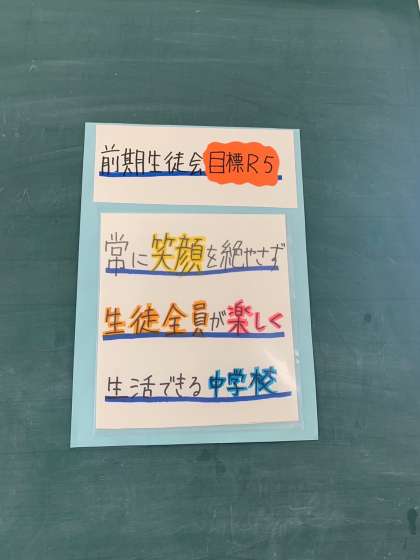 前期生徒会目標R5
常に笑顔を絶やさず
生徒全員が楽しく
生活できる中学校